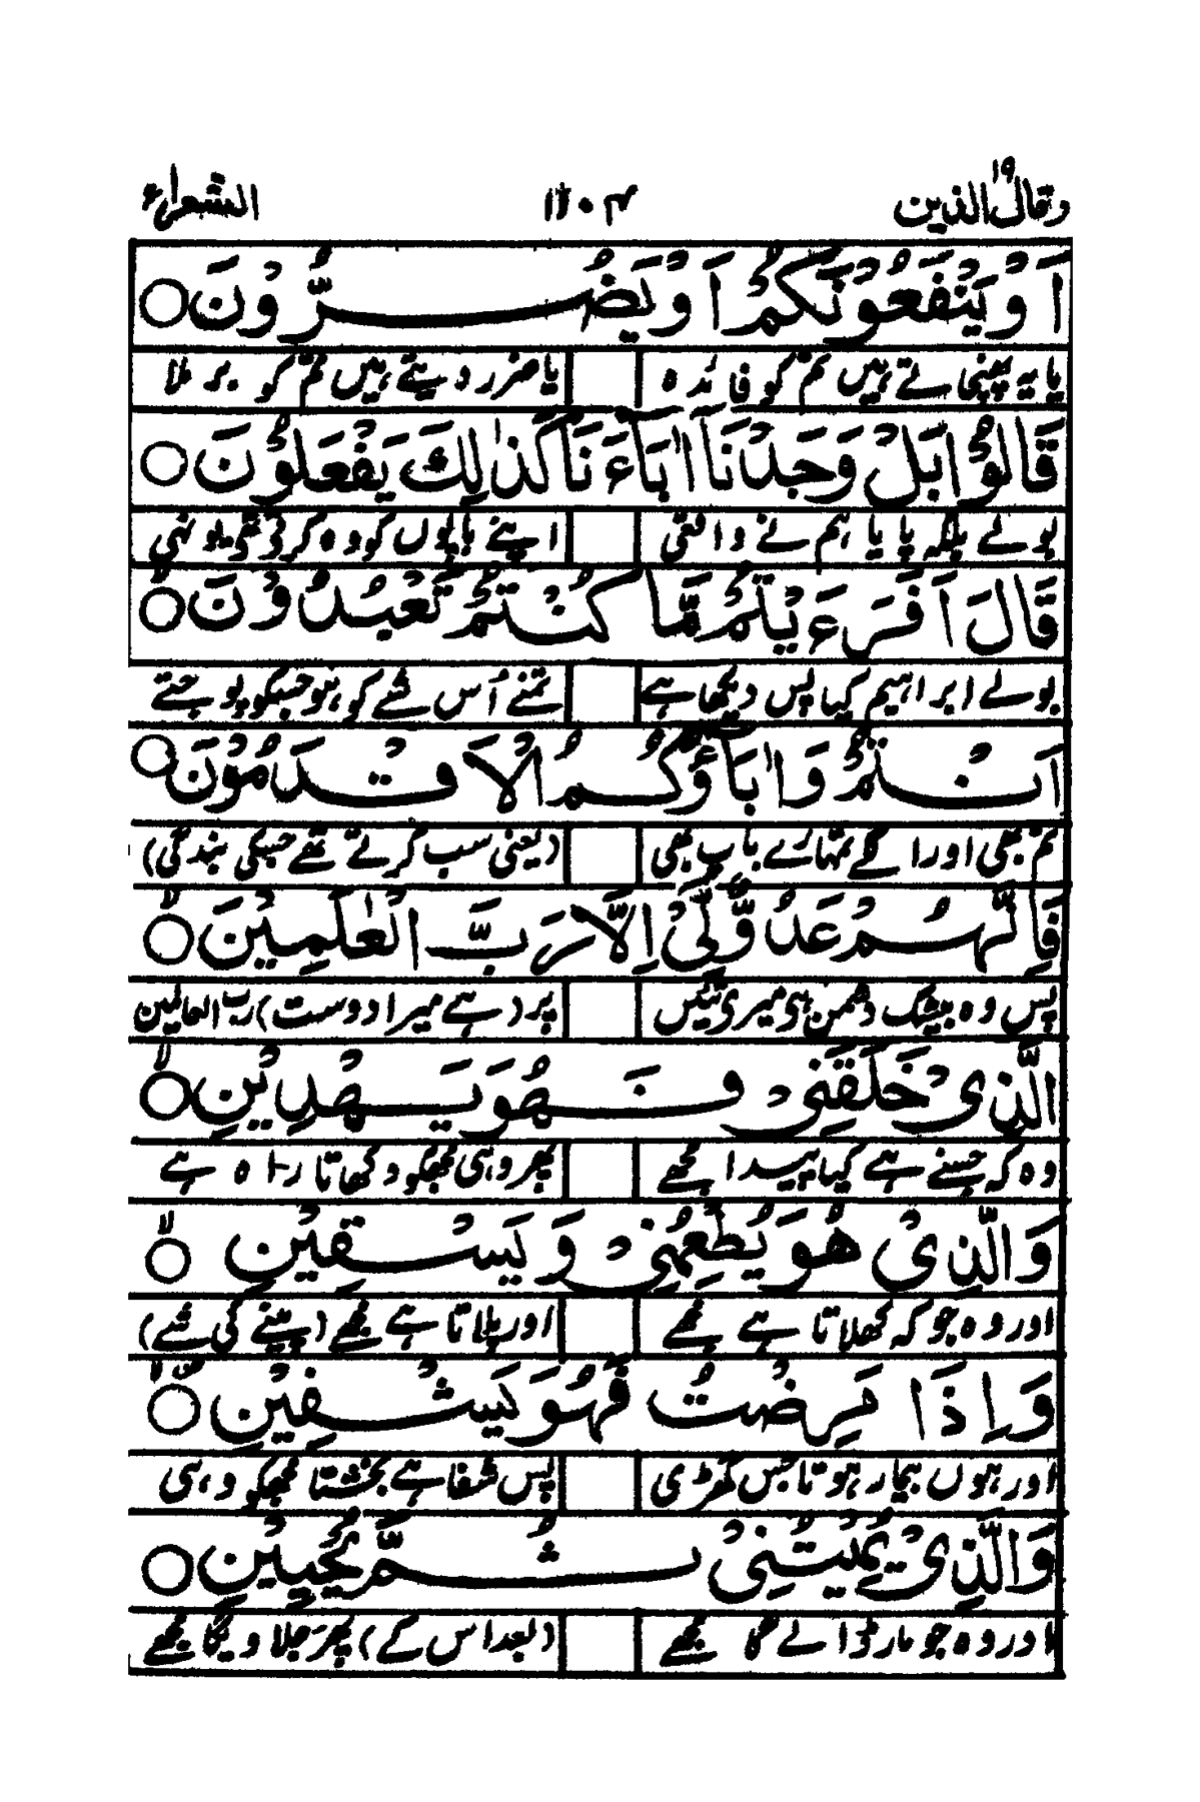 وقال الذین ۱۹ ۱۲۰۴ الشعراء
اَوْ یَنْفَعُوْنَكُمْ اَوْ یَضُرُّوْنَ
یا یہ پہنچاتے ہیں تم کو فائدہ یا ضرر دیتے ہیں تم کو برملا
قَالُوْا بَلْ وَجَدْنَاۤ اٰبَآءَنَا كَذٰلِكَ یَفْعَلُوْنَ
بولے بلکہ پایا ہم نے واقعی اپنے باپوں کو وہ کرتے تھے یونہی
قَالَ اَفَرَءَیْتُمْ مَّا كُنْتُمْ تَعْبُدُوْنَ
بولے ابراہیم کیا پس دیکھا ہے تمنے اُس شے کو ہو جسکو پوجتے
اَنْتُمْ وَاٰبَآؤُكُمُ الْاَقْدَمُوْنَ
تم بھی اور اگلے تمہارے باپ بھی (یعنی سب کرتے تھے جسکی بندگی)
فَاِنَّهُمْ عَدُوٌّ لِّیْۤ اِلَّا رَبَّ الْعٰلَمِیْنَ
پس وہ بیشک دشمن ہی میری تئیں پر (ہے میرا دوست) رب العالمین
الَّذِیْ خَلَقَنِیْ فَهُوَ یَهْدِیْنِ
وہ کہ جسنے ہے کیا پیدا مجھے پھر وہی مجھکو دکھاتا راہ ہے
وَالَّذِیْ هُوَ یُطْعِمُنِیْ وَیَسْقِیْنِ
اور وہ جو کہ کھلاتا ہے مجھے اور پلاتا ہے مجھے (پینے کی شے)
وَاِذَا مَرِضْتُ فَهُوَ یَشْفِیْنِ
اور ہوں بیمار ہوتا جس گھڑی پس شفا ہے بخشتا مجھکو وہی
وَالَّذِیْ یُمِیْتُنِیْ ثُمَّ یُحْیِیْنِ
اور وہ جو مار ڈالے گا مجھے (بعد اس کے) پھر جلا دیگا مجھے